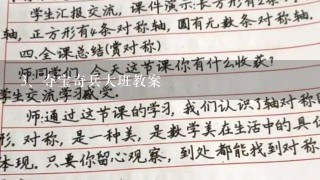 学生汇报交流，课件演示：长方形有2条
轴，正方形有4条对称轴，圆有无数条对称轴。
四.全课总结(赏对称)
师：同学们，今天这节课你有什么收获？
3. 夺宝奇兵大班教案
学生交流学习感受。
师：通过这节课的学习，我们认识了轴对称
形. 对称，是一种美，是数学美在生活中的具
体现。只要你留心观察，到处都能找到对称